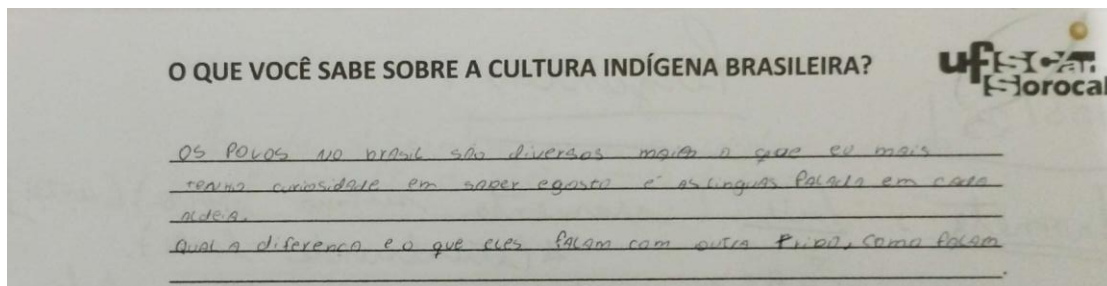 O QUE VOCÊ SABE SOBRE A CULTURA INDÍGENA BRASILEIRA?
ufscar
Sorocab
OS POVOS NO brasil são diversos o que eu mais
tenho curiosidade em saber egosto é as linguas falada em cada
aldeia.
Qual a diferença e o que eles falam com outra, como falam